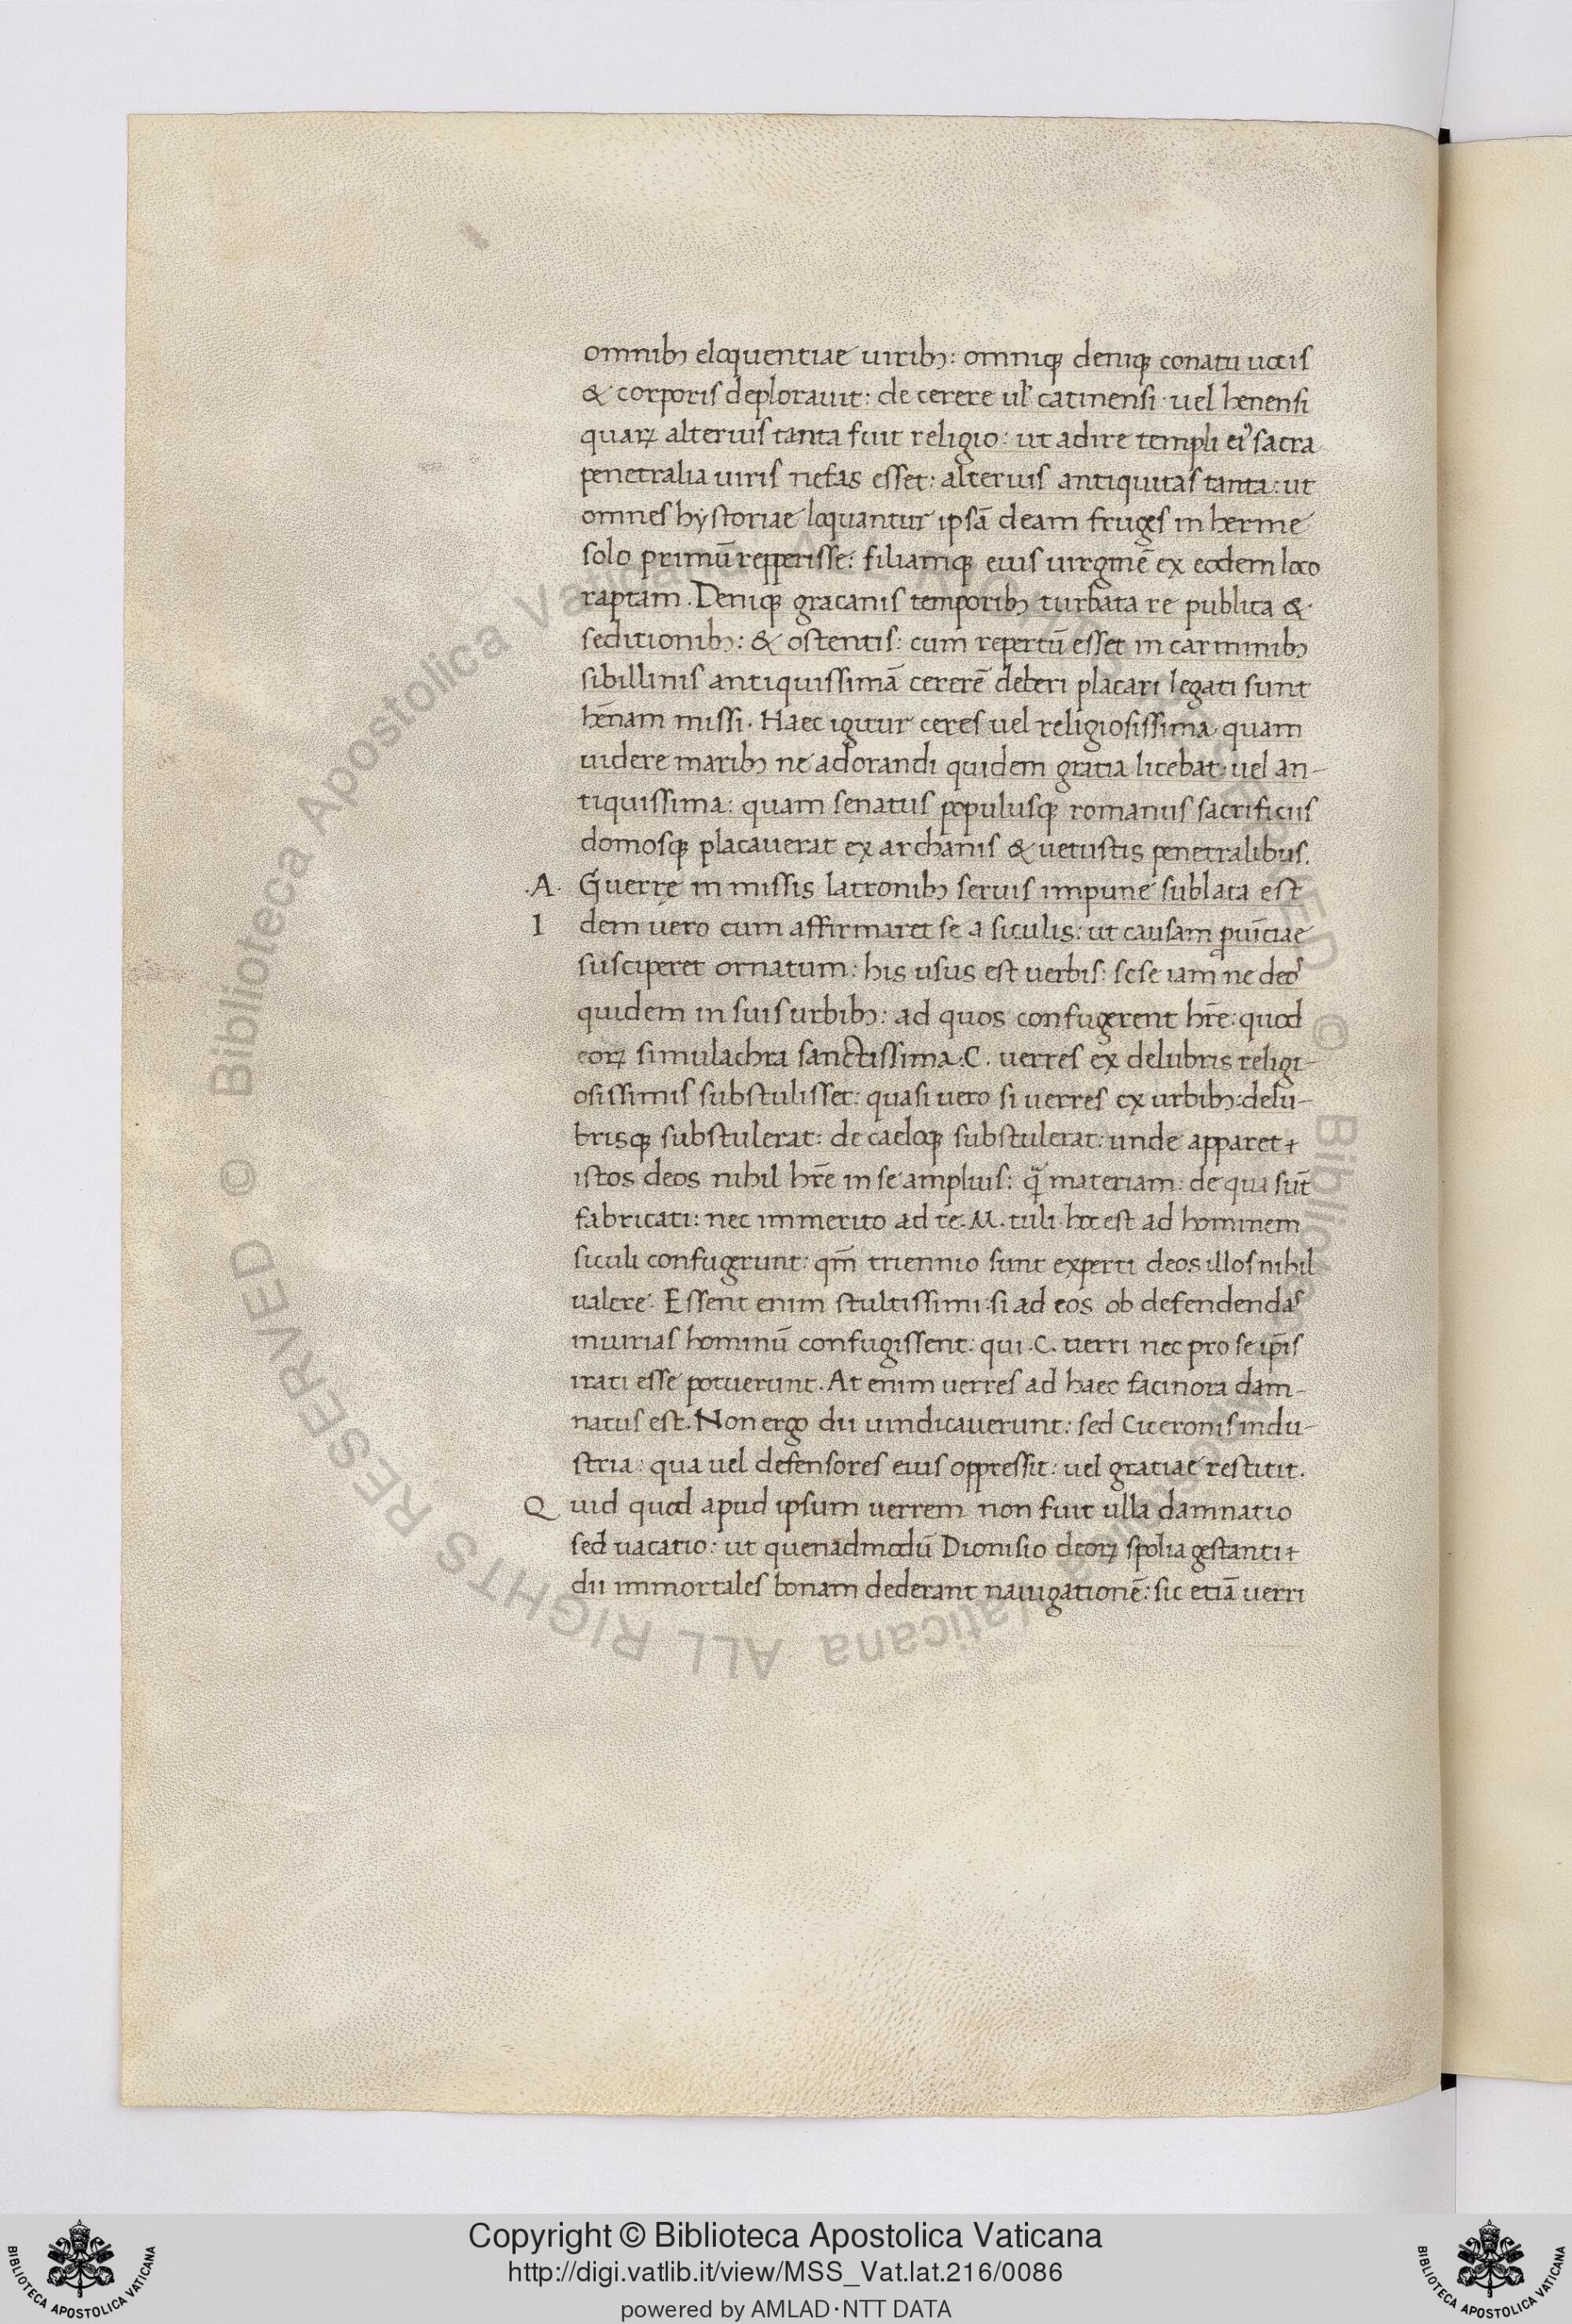 omnibꝫ eloquentiae uiribꝫ: omniqꝫ deniqꝫ conatu uocis
& corporis deplorauit: de cerere ul' catinensi: uel henensi
quaꝝ alterius tanta fuit religio: ut adire templi eiꝰ sacra
penetralia uiris nefas esset: alterius antiquitas tanta: ut
omnes hystoriae loquantur ipsā deam fruges in henne
solo primū repperisse: filiamqꝫ eius uirginē ex eodem loco
raptam. Deniqꝫ gracanis temporibꝫ turbata re publica &
seditionibꝫ: & ostentis: cum repertū esset in carminibꝫ
sibillinis antiquissimā cererē deberi placari legati sunt
hēnam missi. Haec igitur ceres uel religiosissima quam
uidere maribꝫ ne adorandi quidem gratia licebat: uel an-
tiquissima: quam senatus populusqꝫ romanus sacrificiis
domosqꝫ placauerat ex archanis & uetustis penetralibus.
.A. Guerre in missis latronibꝫ seruis impune sublata est
I dem uero cum affirmaret se a siculis: ut causam ꝓuīciae
susciperet ornatum: his usus est uerbis: sese iam ne deoˢ
quidem in suis urbibꝫ: ad quos confugerent hr̄e: quod
eoꝝ simulachra sanctissima .C. uerres ex delubris religi-
osissimis substulisset: quasi uero si uerres ex urbibꝫ: delu-
brisqꝫ substulerat: de caeloqꝫ substulerat: unde apparet +
istos deos nihil hr̄e in se amplius: q̄ materiam: de qua sūt
fabricati: nec immerito ad te .M. tuli hoc est ad hominem
siculi confugerunt: qm̄ triennio sunt experti deos illos nihil
ualere. Essent enim stultissimi: si ad eos ob defendendaˢ
iniurias hominū confugissent: qui .C. uerri nec pro se ip̄is
irati esse potuerunt. At enim uerres ad haec facinora dam-
natus est. Non ergo dii uindicauerunt: sed Ciceronis indu-
stria: qua uel defensores eius oppressit: uel gratiae restitit.
Q uid quod apud ipsum uerrem non fuit ulla damnatio
sed uacatio: ut quenadmodū Dionisio deoꝝ spolia gestanti +
dii immortales bonam dederant nauigationē: sic etiā uerri
© Biblioteca Apostolica Vaticana ALL RIGHTS RESERVED © Biblioteca Apostolica Vaticana ALL RIGHTS RESERVED
Copyright © Biblioteca Apostolica Vaticana
http://digi.vatlib.it/view/MSS_Vat.lat.216/0086
powered by AMLAD·NTT DATA
BIBLIOTECA APOSTOLICA VATICANA
BIBLIOTECA APOSTOLICA VATICANA